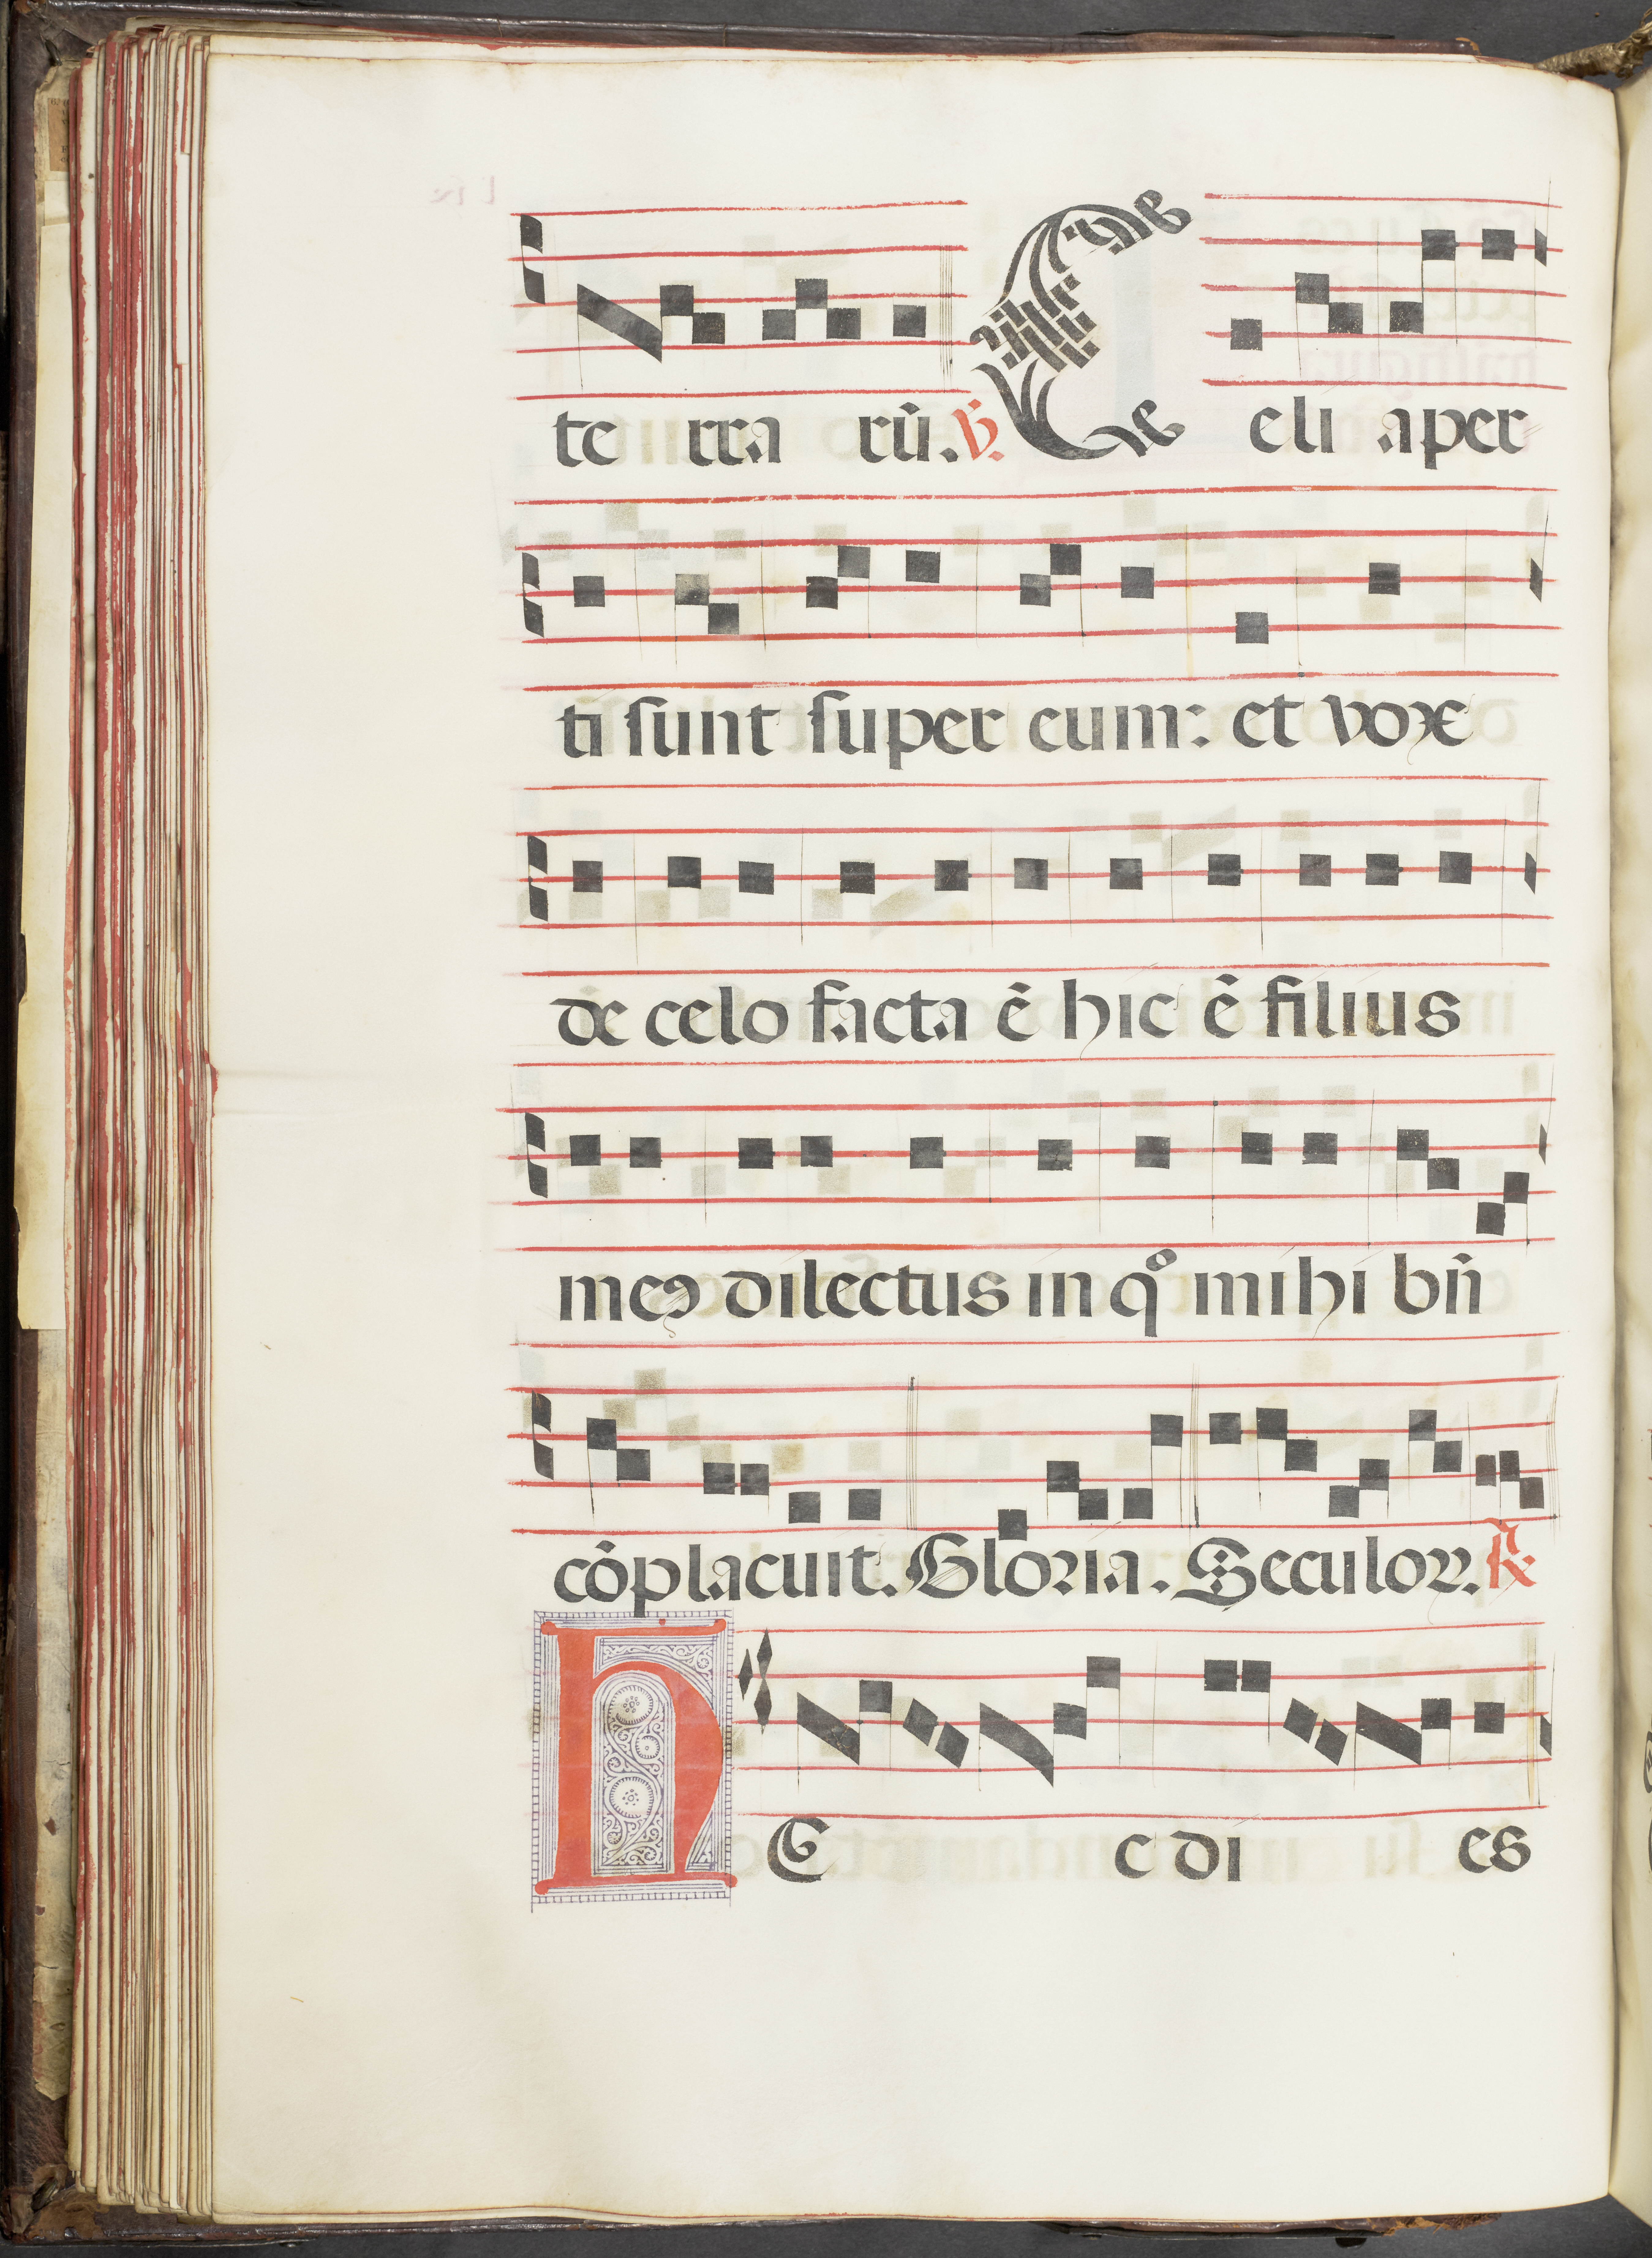 te rra rū. ℣. Celi aper
ti sunt super eum: et vox
de celo facta ē hic ē filius
meꝯ dilectus in qͦ mihi bn̄
cōplacuit. Gloria. Seculoꝝ. ℟
hEc di es